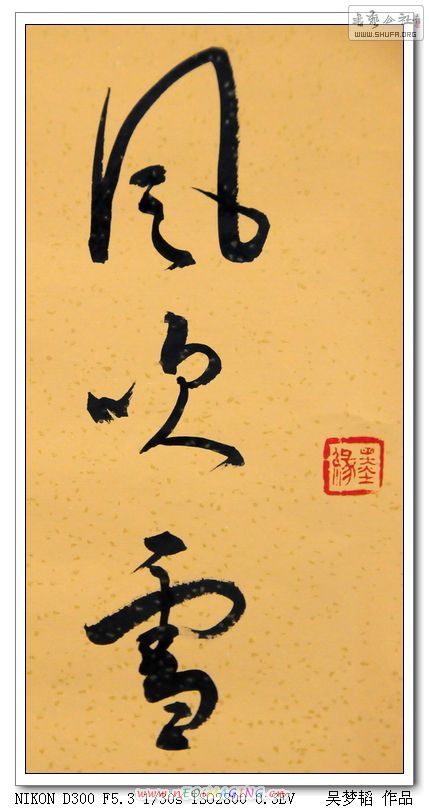 书艺公社
WWW.SHUFA.ORG
風
吹
雪
墨緣
WWW.NEOIMAGING.CN
NIKON D300 F5.3 1/30s ISO2800 0.3EV 吴梦韬 作品